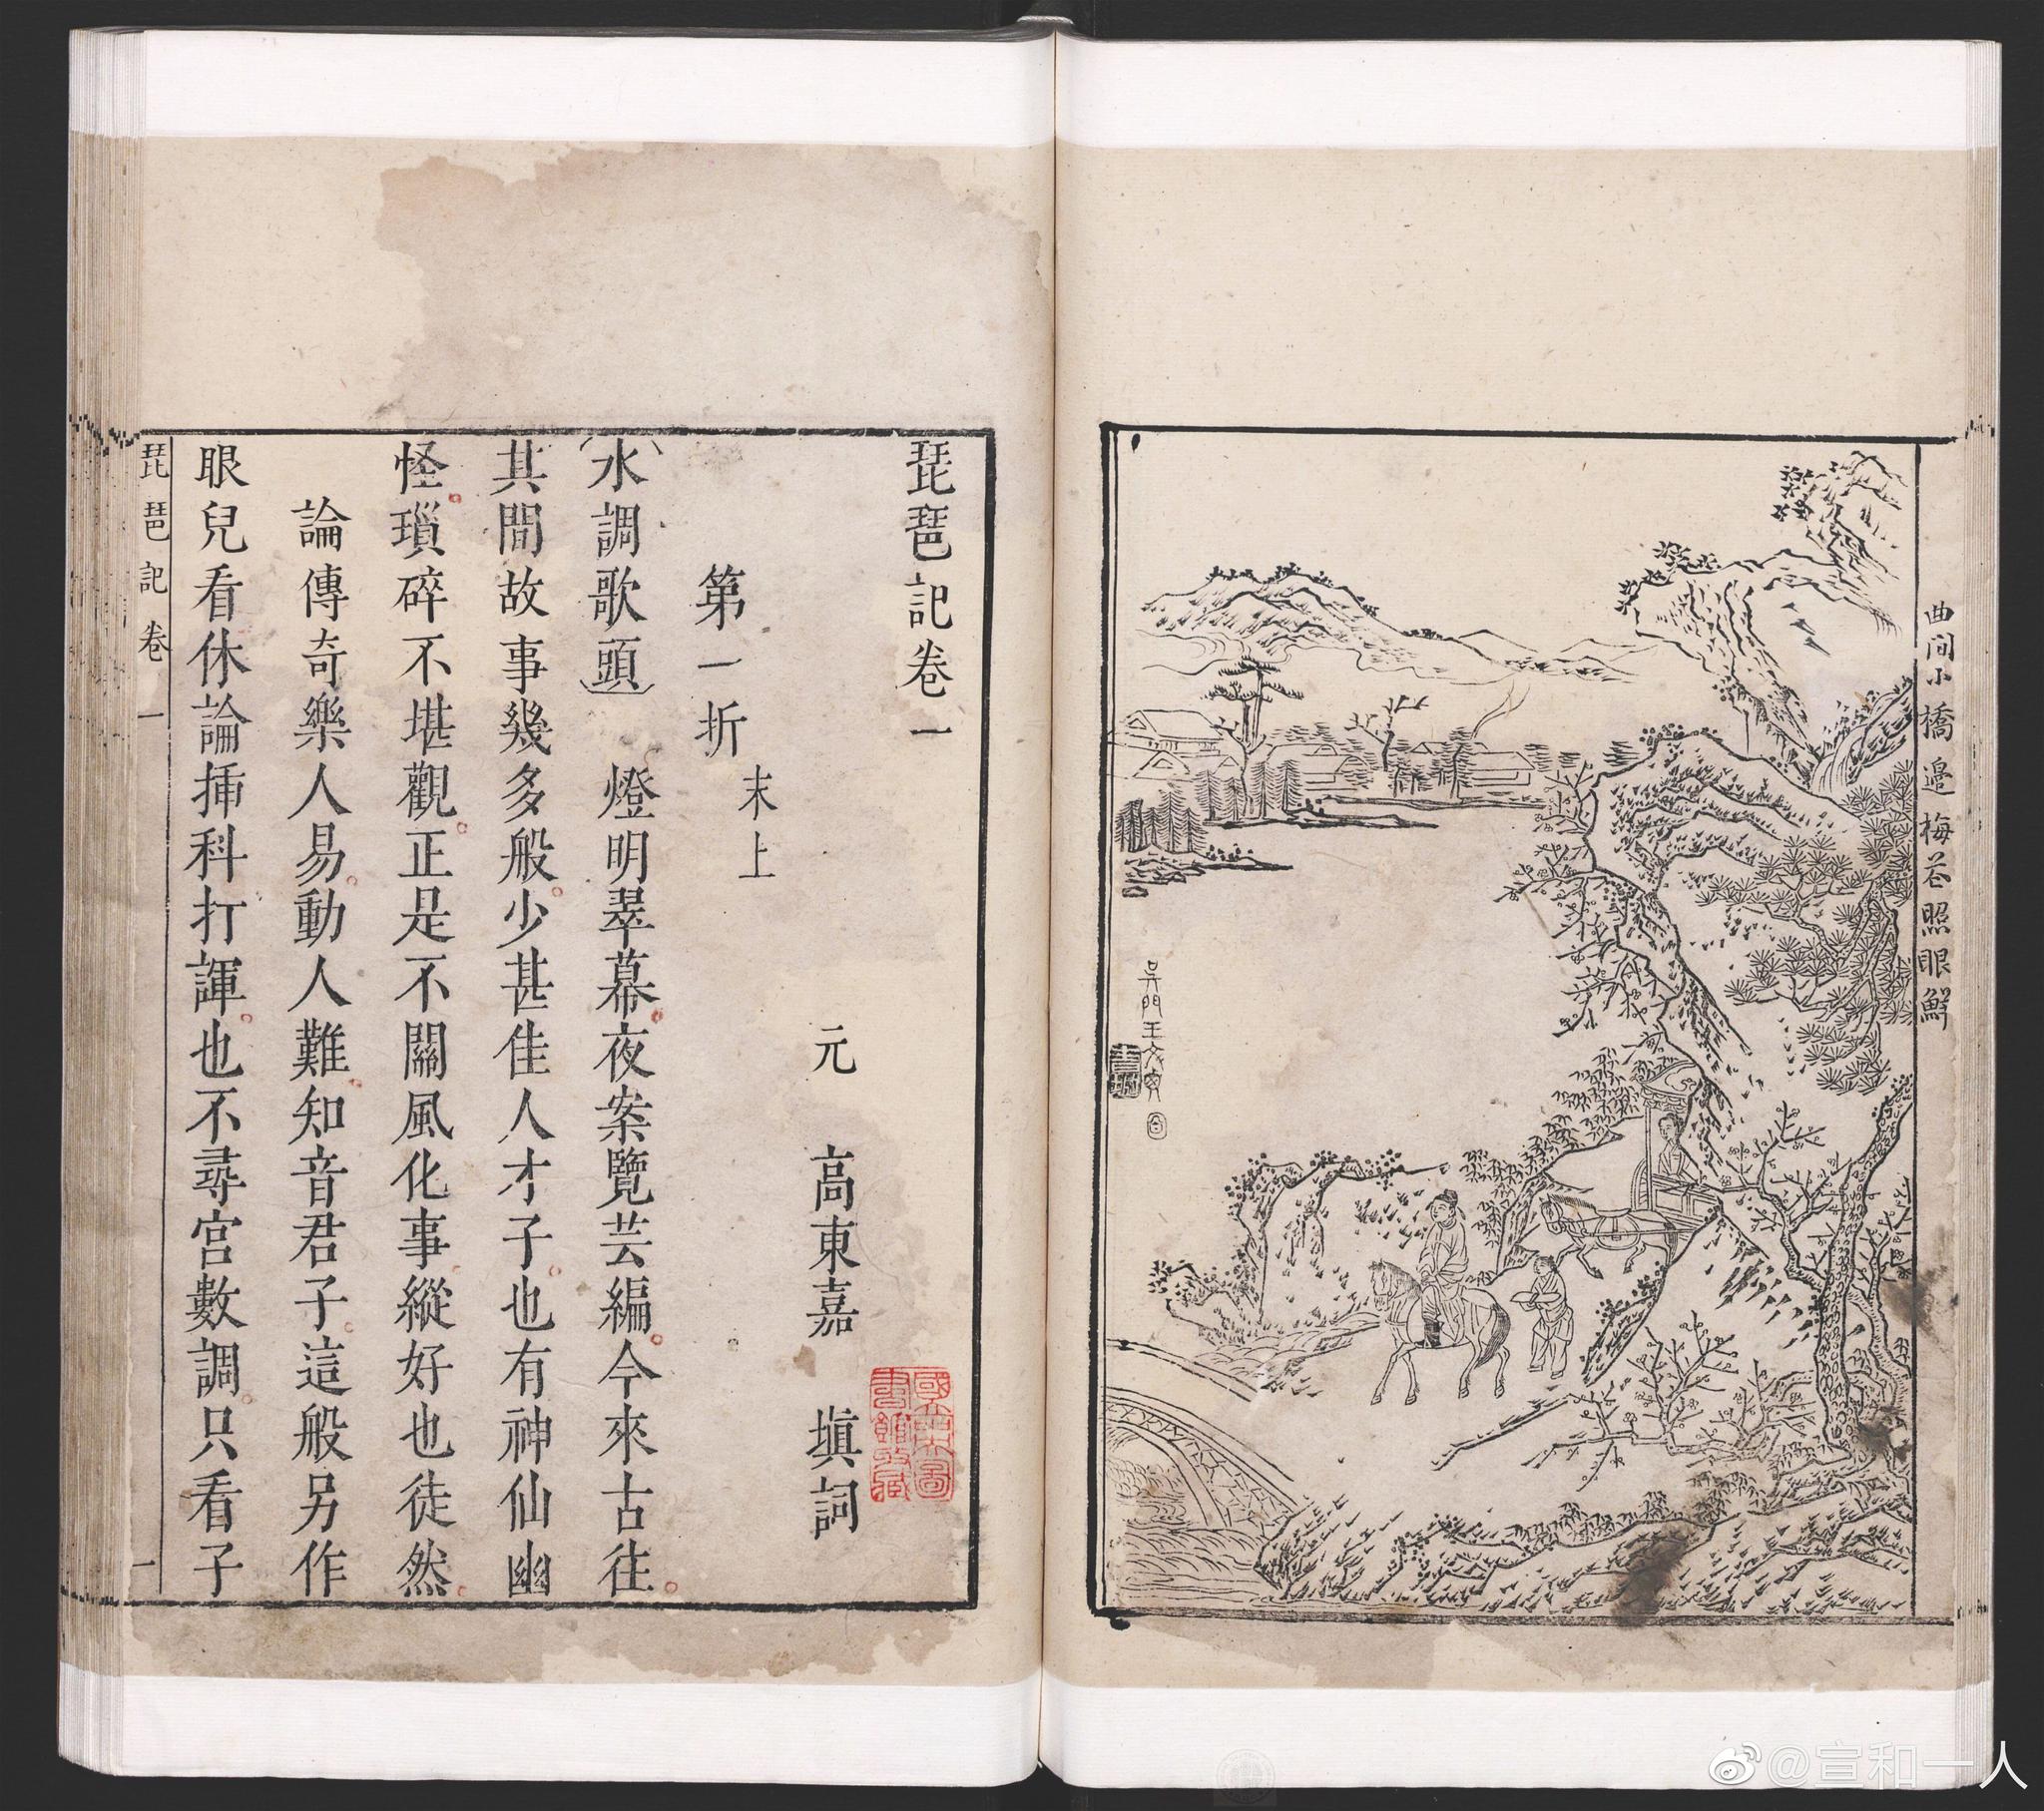 曲間小橋邉梅花照眼鮮
吳門王文衡
琵琶記卷一
元 高東嘉 塡詞
國立中央圖
書館收藏
第一折
末上
水調歌頭 燈明翠幕夜案覽芸編今來古往
其間故事幾多般少甚佳人才子也有神仙幽
怪瑣碎不堪觀正是不關風化事縱好也徒然
論傳奇樂人易動人難知音君子這般另作
眼兒看休論揷科打諢也不尋宮數調只看子
琵琶記 卷一 一
@宣和一人